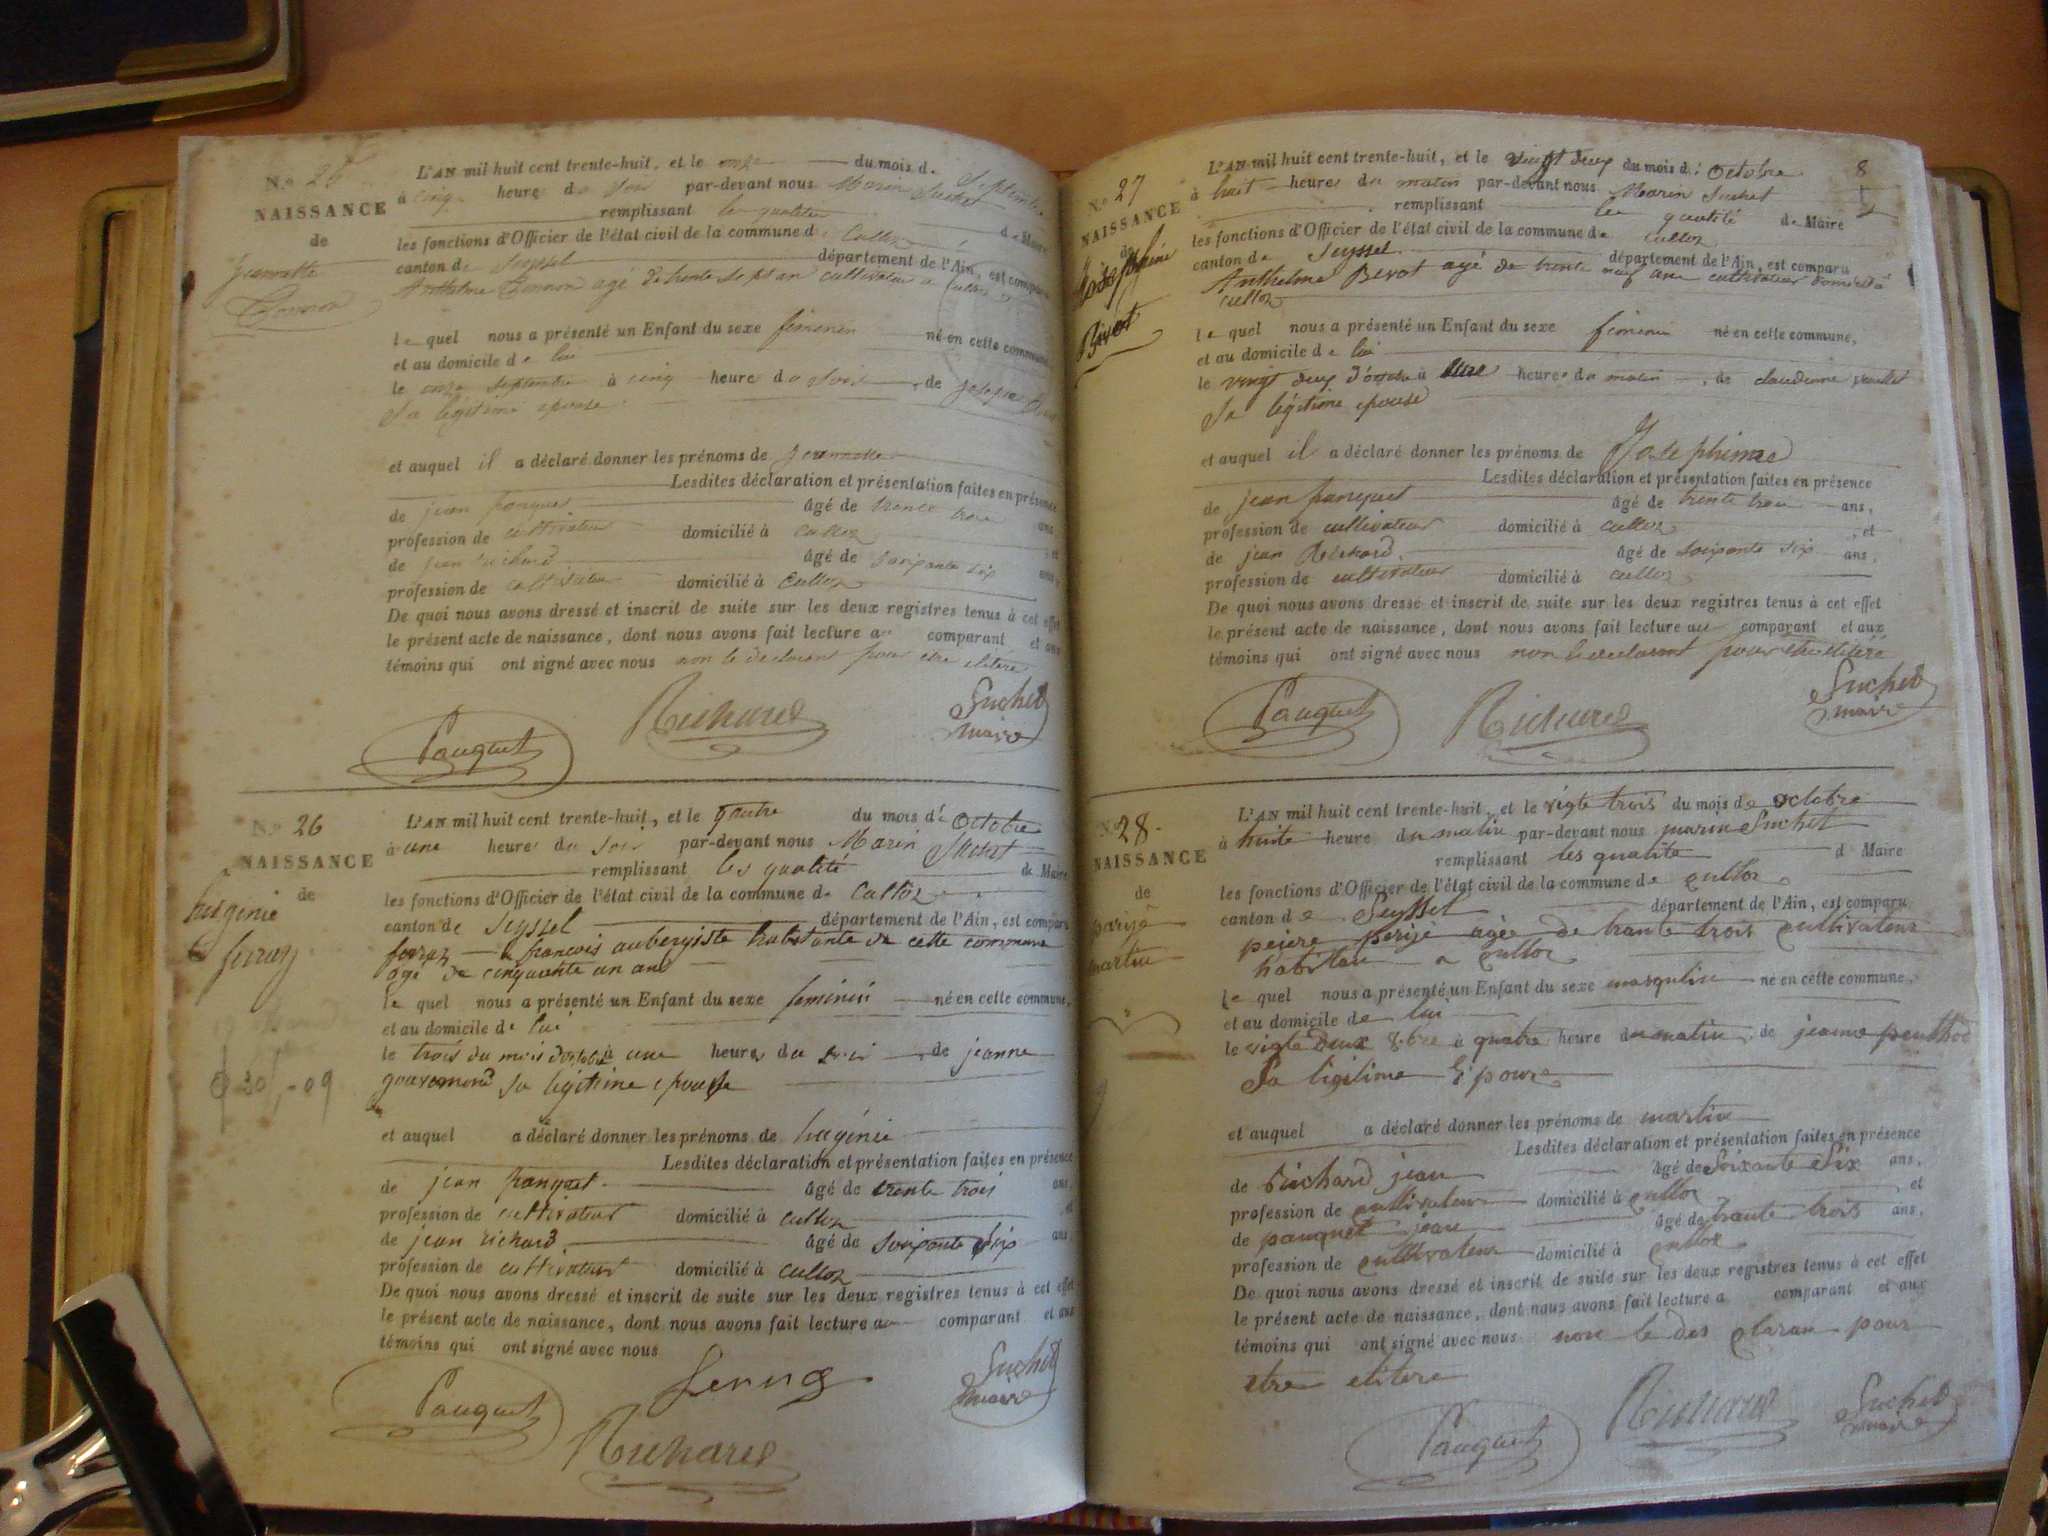 N.o 25
NAISSANCE
de
jeannette
L'AN mil huit cent trente-huit, et le onze du mois de Septembre
à cinq heures du soir par-devant nous Marin Suchet
remplissant les qualités de Maire
les fonctions d'Officier de l'état civil de la commune de Culloz
canton de Seyssel département de l'Ain, est comparu
Anthelme agé de trente sept an cultivateur a Culloz
le quel nous a présenté un Enfant du sexe féminin né en cette commune,
et au domicile de lui
le onze Septembre à cinq heures du Soir, de
Sa légitime epouse
et auquel il a déclaré donner les prénoms de jeannette
Lesdites déclaration et présentation faites en présence
de jean pauquet âgé de trente trois ans,
profession de cultivateur domicilié à Culloz, et
de jean richard âgé de soixante six ans,
profession de cultivateur domicilié à Culloz
De quoi nous avons dressé et inscrit de suite sur les deux registres tenus à cet effet
le présent acte de naissance, dont nous avons fait lecture au comparant et aux
témoins qui ont signé avec nous non le declarant pour etre elitéré
Pauquet Richard Suchet
maire
N.o 26
NAISSANCE
de
hugénie
ferraz
L'AN mil huit cent trente-huit, et le quatre du mois d' Octobre
à une heures du Soir par-devant nous Marin Suchet
remplissant les qualité de Maire
les fonctions d'Officier de l'état civil de la commune de Culloz
canton de Seyssel département de l'Ain, est comparu
ferraz francois aubergiste habitante de cette commune
agé de cinquante un ans
le quel nous a présenté un Enfant du sexe feminin né en cette commune,
et au domicile de lui
le trois du mois d'octobre à une heures du soir, de jeanne
Sa légitime epousse
et auquel a déclaré donner les prénoms de hugénie
Lesdites déclaration et présentation faites en présence
de jean pauquet âgé de trente trois ans,
profession de cultivateur domicilié à Culloz, et
de jean richard âgé de Soixante Six ans
profession de cultivateur domicilié à Culloz
De quoi nous avons dressé et inscrit de suite sur les deux registres tenus à cet effet
le présent acte de naissance, dont nous avons fait lecture au comparant et aux
témoins qui ont signé avec nous
Pauquet Richard Suchet
maire
8
N.o 27
NAISSANCE
de
Josephine
Bivot
L'AN mil huit cent trente-huit, et le vingt deux du mois d' Octobre
à huit heures du matin par-devant nous Marin Suchet
remplissant les qualité de Maire
les fonctions d'Officier de l'état civil de la commune de Culloz
canton de Seyssel département de l'Ain, est comparu
Anthelme Bevot agé de trente neuf ans cultivateur domicilié a
Culloz
le quel nous a présenté un Enfant du sexe féminin né en cette commune,
et au domicile de lui
le vingt deux d'octobre à une heures du matin, de claudine
Sa légitime epouse
et auquel il a déclaré donner les prénoms de Josephine
Lesdites déclaration et présentation faites en présence
de jean pauquet âgé de trente trois ans,
profession de cultivateur domicilié à Culloz, et
de jean Richard âgé de soixante six ans,
profession de cultivateur domicilié à Culloz
De quoi nous avons dressé et inscrit de suite sur les deux registres tenus à cet effet
le présent acte de naissance, dont nous avons fait lecture au comparant et aux
témoins qui ont signé avec nous non le declarant pour etre elitéré
Pauquet Richard Suchet
maire
N.o 28
NAISSANCE
de
martin
L'AN mil huit cent trente-huit, et le vigte trois du mois de octobre
à huite heure du matin par-devant nous marin Suchet
remplissant les qualite d Maire
les fonctions d'Officier de l'état civil de la commune de Culloz
canton de Seyssel département de l'Ain, est comparu
agée de trante trois cultivateur
habitan a Culloz
le quel nous a présenté un Enfant du sexe masqulin né en cette commune,
et au domicile de lui
le vigte deux 8.bre à quatre heure du matin, de jeanne
Sa ligitime Epouze
et auquel a déclaré donner les prénoms de martin
Lesdites déclaration et présentation faites en présence
de Richard jean âgé de Soixante Six ans,
profession de cultivateur domicilié à Culloz, et
de pauquet jean âgé de trante trois ans,
profession de cultivateur domicilié à Culloz
De quoi nous avons dressé et inscrit de suite sur les deux registres tenus à cet effet
le présent acte de naissance, dont nous avons fait lecture a comparant et aux
témoins qui ont signé avec nous non le des claran pour
etre elitere
Pauquet Richard Suchet
maire